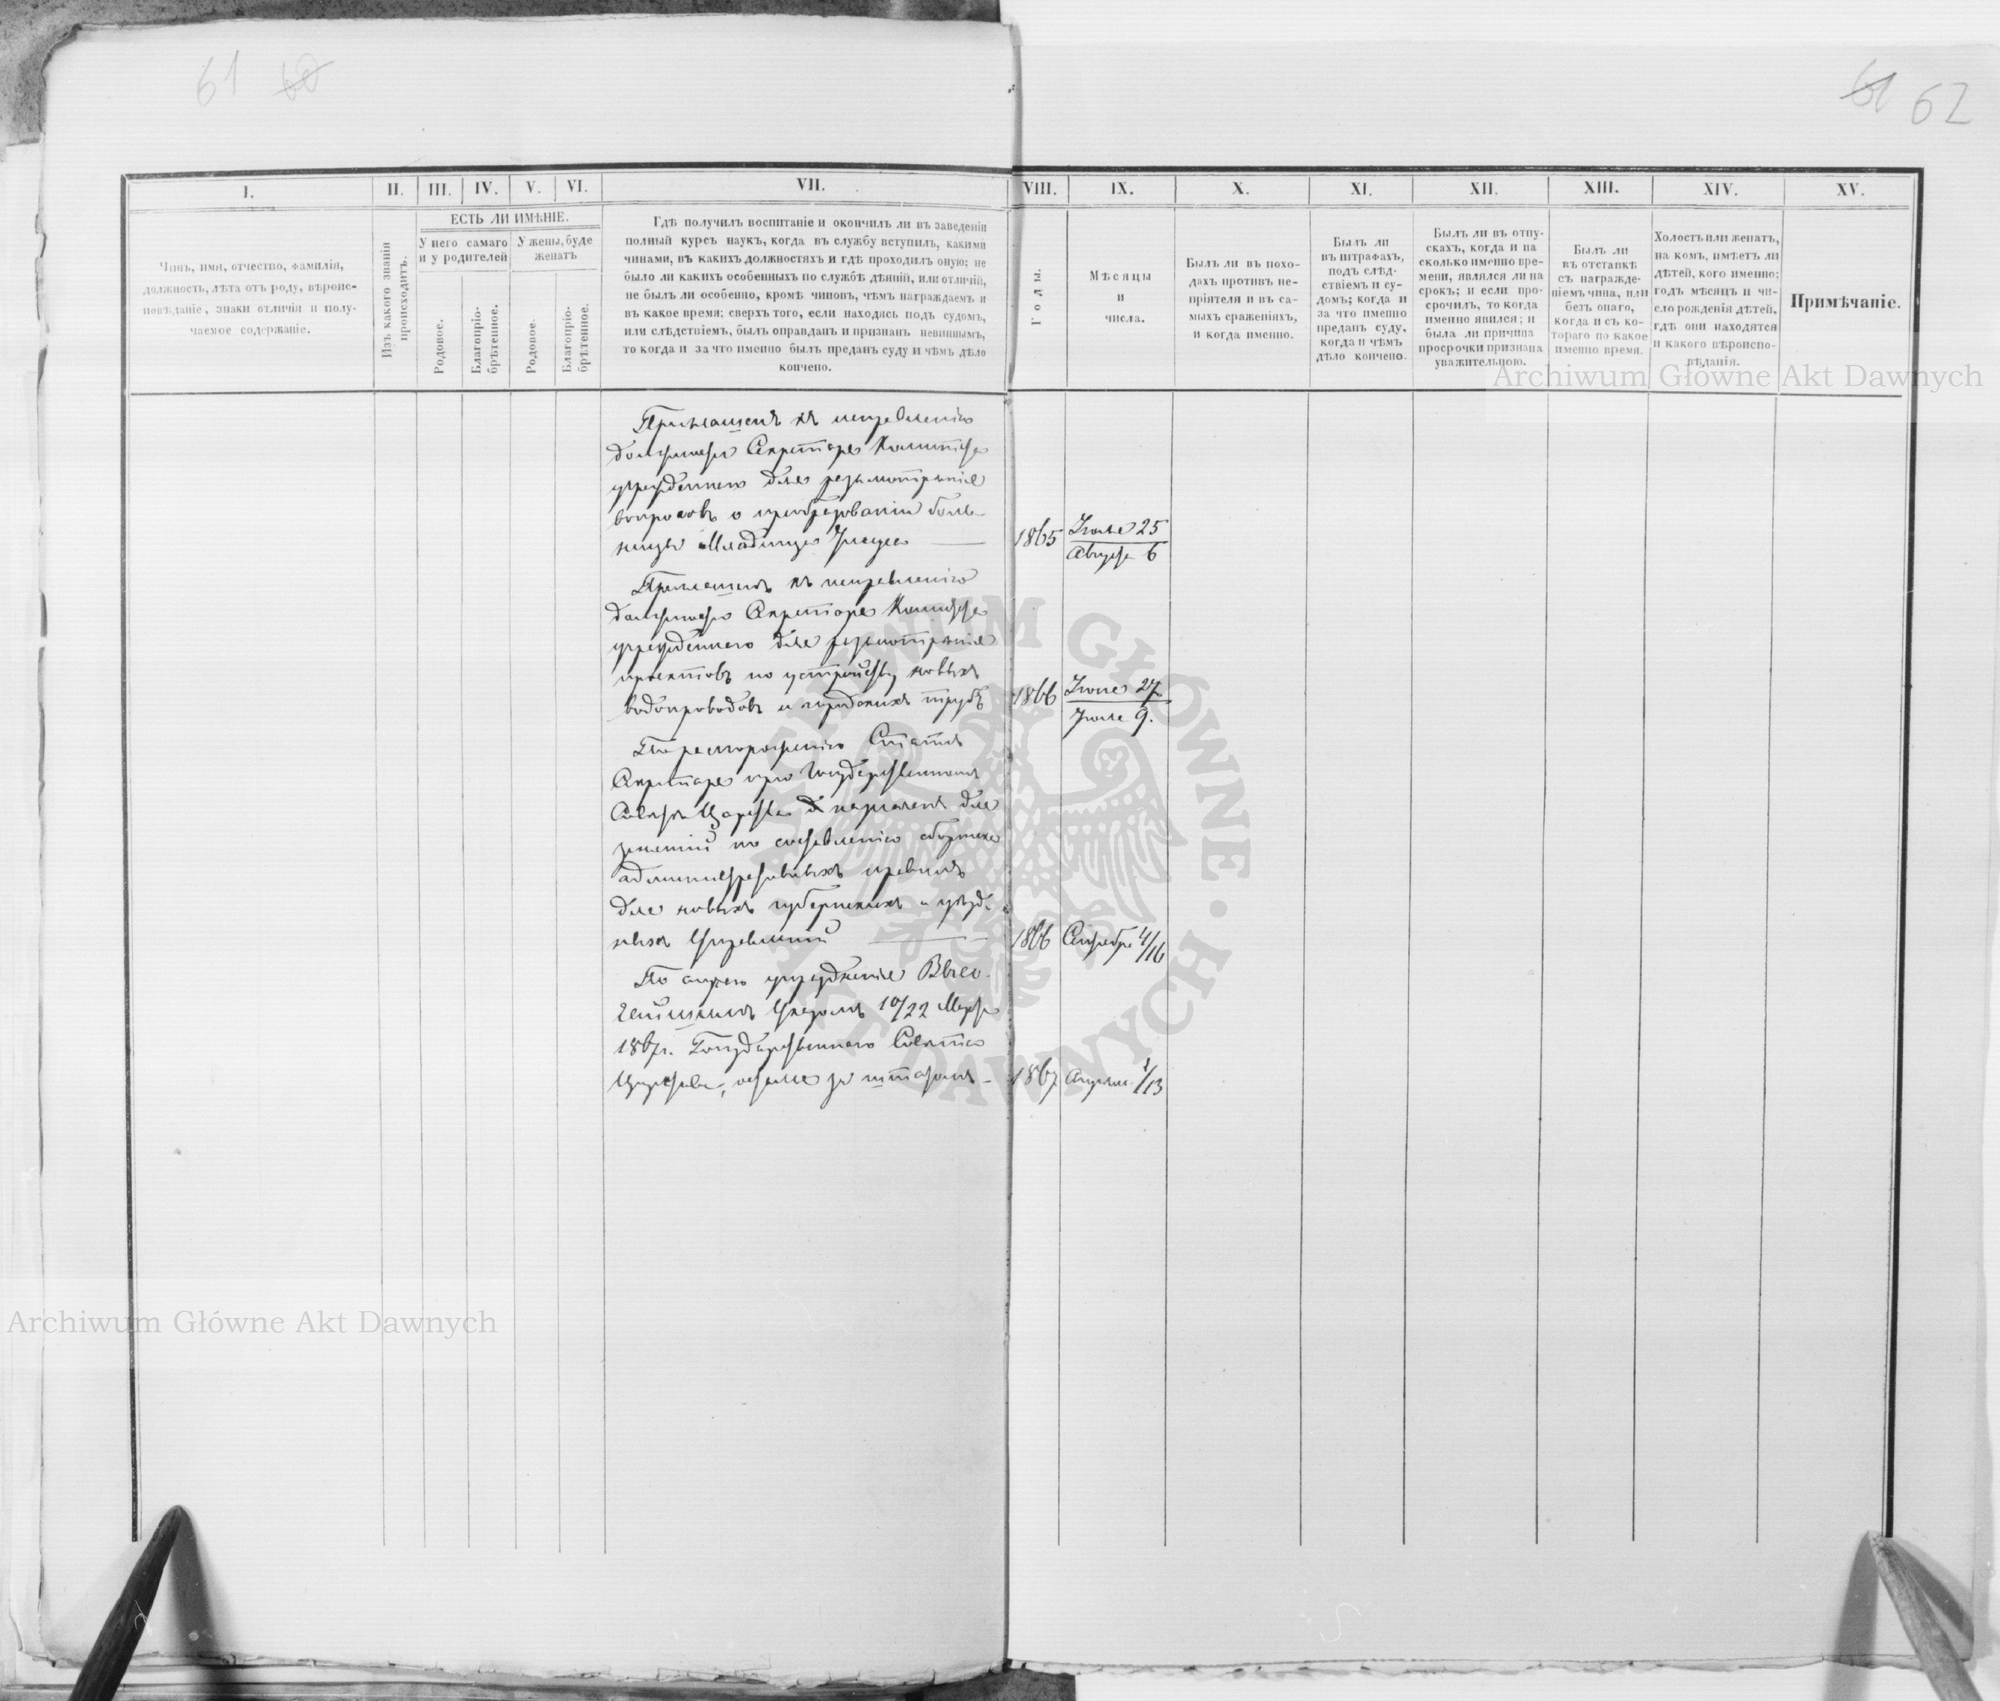 61 60
61 62
I. II. III. IV. V. VI. VII. VIII. IX. X. XI. XII. XIII. XIV. XV.
Чинъ, имя, отчество, фамилія,
должность, лѣта отъ роду, вѣроис-
повѣданіе, знаки отличія и полу-
чаемое содержаніе.
Изъ какого званія
происходитъ.
ЕСТЬ ЛИ ИМѢНІЕ.
У него самаго
и у родителей
У жены, буде
женатъ
Родовое.
Благопріо-
брѣтенное.
Родовое.
Благопріо-
брѣтенное.
Гдѣ получилъ воспитаніе и окончилъ ли въ заведеніи
полный курсъ наукъ, когда въ службу вступилъ, какими
чинами, въ какихъ должностяхъ и гдѣ проходилъ оную; не
было ли какихъ особенныхъ по службѣ дѣяній, или отличій,
не былъ ли особенно, кромѣ чиновъ, чѣмъ награждаемъ и
въ какое время; сверхъ того, если находясь подъ судомъ,
или слѣдствіемъ, былъ оправданъ и признанъ невиннымъ,
то когда и за что именно былъ преданъ суду и чѣмъ дѣло
кончено.
Годы.
Мѣсяцы
и
числа.
Былъ ли въ похо-
дахъ противъ не-
пріятеля и въ са-
мыхъ сраженіяхъ,
и когда именно.
Былъ ли
въ штрафахъ,
подъ слѣд-
ствіемъ и су-
домъ; когда и
за что именно
преданъ суду,
когда и чѣмъ
дѣло кончено.
Былъ ли въ отпу-
скахъ, когда и на
сколько именно вре-
мени, являлся ли на
срокъ; и если про-
срочилъ, то когда
именно явился; и
была ли причина
просрочки признана
уважительною.
Былъ ли
въ отставкѣ
съ награжде-
ніемъ чина, или
безъ онаго,
когда и съ ко-
тораго по какое
именно время.
Холостъ или женатъ,
на комъ, имѣетъ ли
дѣтей, кого именно;
годъ мѣсяцъ и чи-
сло рожденія дѣтей,
гдѣ они находятся
и какого вѣроиспо-
вѣданія.
Примѣчаніе.
Приглашенъ къ исправленію
должности Секретаря Комитета
учрежденнаго для разсмотрѣнія
вопросовъ о преобразованіи боль-
ницы Младенца Іисуса 1865 Іюля 25
Августа 6
Приглашенъ къ исправленію
должности Секретаря Комитета
учрежденнаго для разсмотрѣнія
проектовъ по устройству новыхъ
водопроводовъ и городскихъ трубъ 1866 Іюня 27
Іюля 9.
По распоряженію Статсъ
Секретаря при Государственномъ
Совѣтѣ Царства назначенъ для
занятій по составленію сборника
административныхъ правилъ
для новыхъ губернскихъ и уѣзд-
ныхъ Управленій 1866 Сентября 4/16
По случаю упраздненія Высо-
чайшимъ Указомъ 10/22 Марта
1867 г. Государственнаго Совѣта
Царства, остался за штатомъ 1867 Апрѣля 1/13
Archiwum Główne Akt Dawnych
Archiwum Główne Akt Dawnych
ARCHIWUM GŁÓWNE AKT DAWNYCH